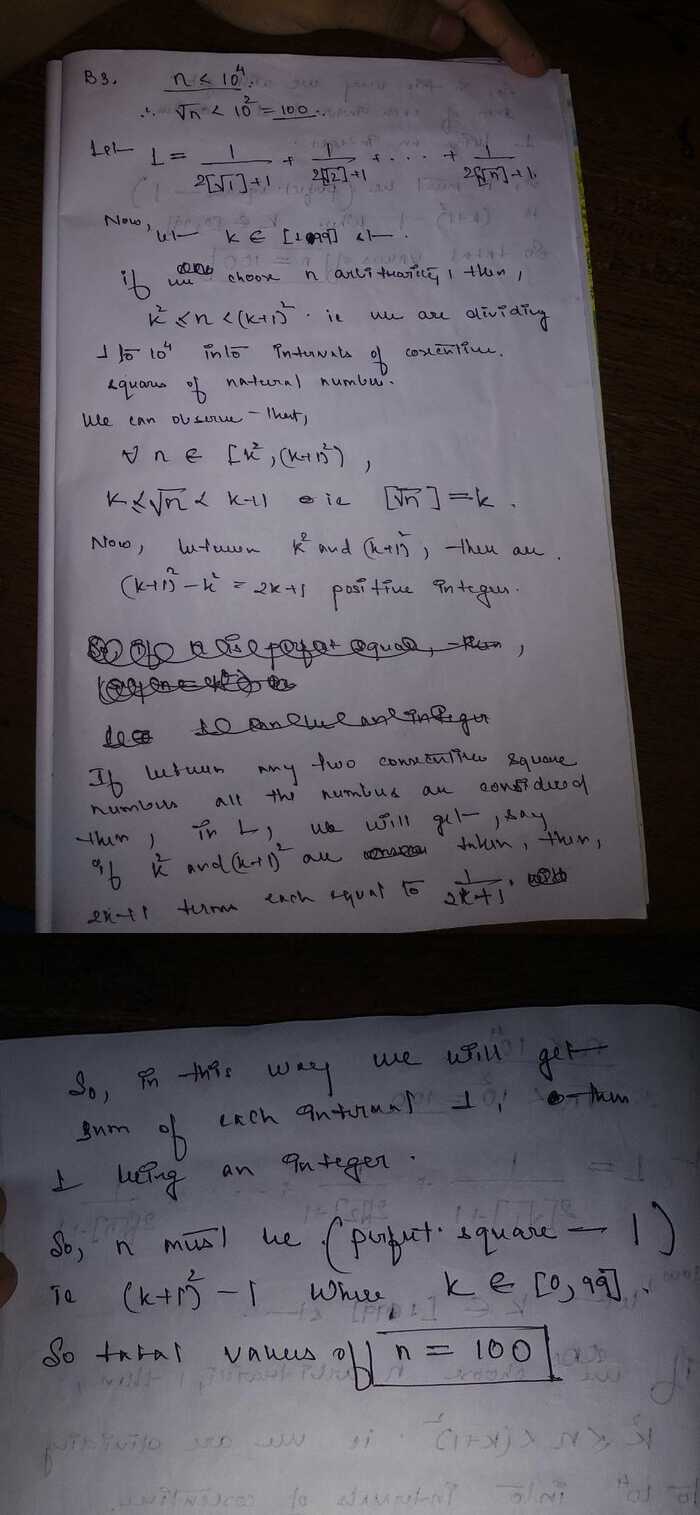 B3. n < 10⁴.
∴ √n < 10² = 100.
Let L = 1/(2[√1]+1) + 1/(2[√2]+1) + .... + 1/(2[√n]+1).
Now,
let k ∈ [1, 99] st.
if we choose n arbitrarily, then,
k² ≤ n < (k+1)². ie we are dividing
1 to 10⁴ into intervals of
squares of natural number.
We can observe that,
∀ n ∈ [k², (k+1)²),
k ≤ √n < k+1 ie [√n] = k.
Now, between k² and (k+1)², then are
(k+1)² - k² = 2k+1 positive integer.
If between any two consecutive square
numbers all the numbers are considered
then, in L, we will get, say
if k² and (k+1)² are taken, then,
2k+1 terms each equal to 1/(2k+1).
So, in this way we will get
sum of each interval 1, then
L being an integer.
So, n must be (perfect square - 1)
ie (k+1)² - 1 where, k ∈ [0, 99].
So total values of n = 100